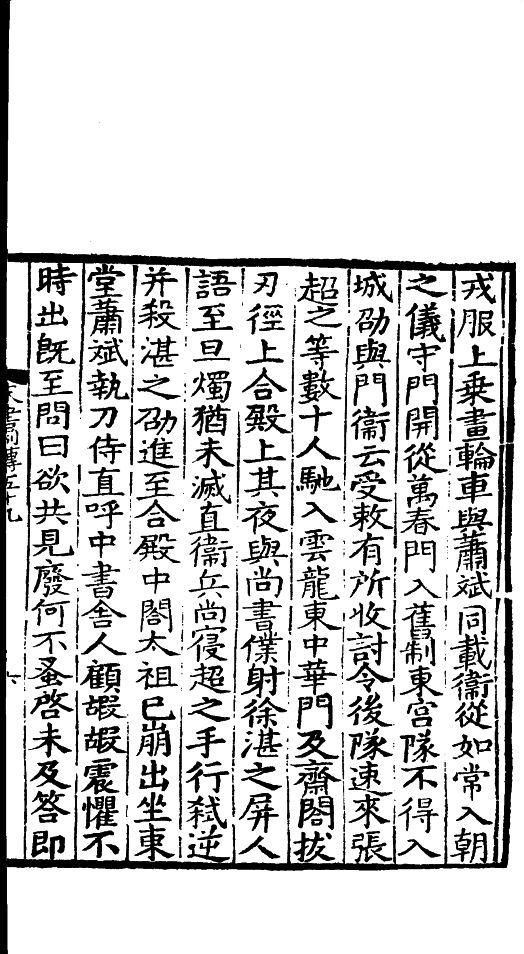 戎服上乗畫輪車與蕭斌同載衞從如常入朝
之儀守門開從萬春門入舊制東宮隊不得入
城劭與門衞云受敕有所收討令後隊速來張
超之等數十人馳入雲龍東中華門及齋閤拔
刃徑上合殿上其夜與尚書僕射徐湛之屏人
語至旦燭猶未滅直衞兵尚寢超之手行弑逆
并殺湛之劭進至合殿中閤太祖已崩出坐東
堂蕭斌執刀侍直呼中書舎人顧嘏嘏震懼不
時出旣至問曰欲共見廢何不蚤啓未及答即
傳五十九
六